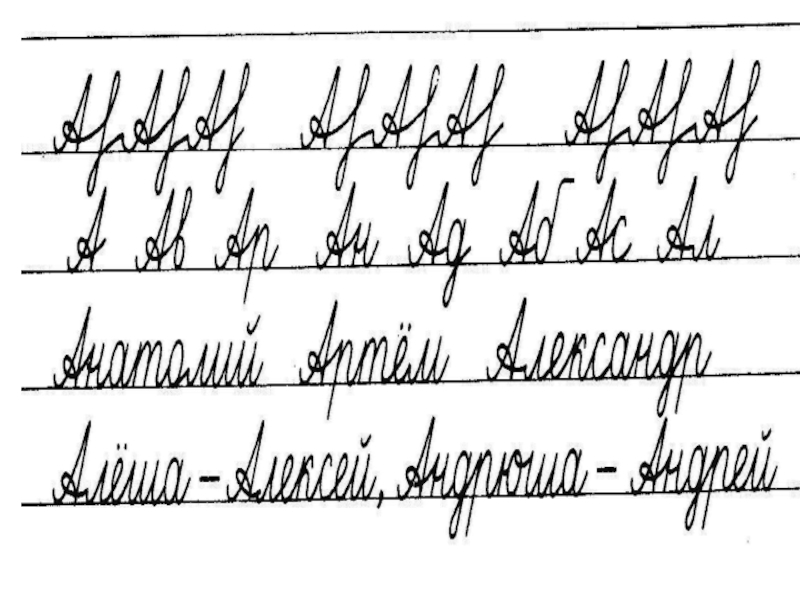 А А Ав Ар Ан Ад Аб Ас Ал
Анатолий Артём Александр
Алёша – Алексей, Андрюша – Андрей